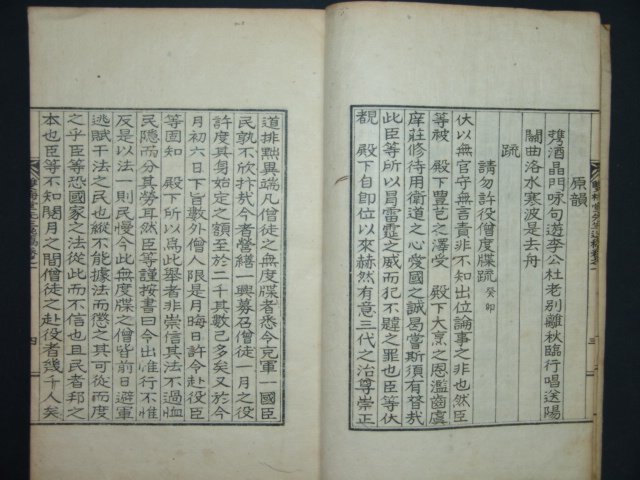 原韻
携酒晶門咏句遊李公杜老別離秋臨行唱送陽
關曲洛水寒波是去舟
疏
請勿許役僧度牒疏 癸卯
伏以無官守無言責非不知出位論事之非也然臣
等被 殿下豊芑之澤受 殿下大烹之恩濫齒虞
庠莊修待用衛道之心愛國之誠曷嘗斯須有替哉
此臣等所以冒雷霆之威而犯不韙之罪也臣等伏
覩 殿下自卽位以來赫然有意三代之治尊崇正
三
道排黜異端凡僧徒之無度牒者悉令充軍一國臣
民孰不欣抃哉今者營繕 興募召僧徒一月之役
許度其身始定之額至於二千其數已多矣又於今
月初六日下旨數外僧人限是月晦日許令赴役臣
等固知 殿下所以爲此擧者非崇信其法不過恤
民隐而分其勞耳然臣等謹按書曰令出惟行不惟
反是以法一則民慢今此無度牒之僧皆前日避軍
逃賦干法之民也縱不能據法而懲之其可從而度
之乎臣等恐國家之法從此而不信也且民者邦之
本也臣等不知閱月之間僧徒之赴役者幾千人矣
四